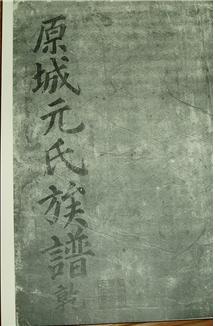 原城元氏族譜 乾